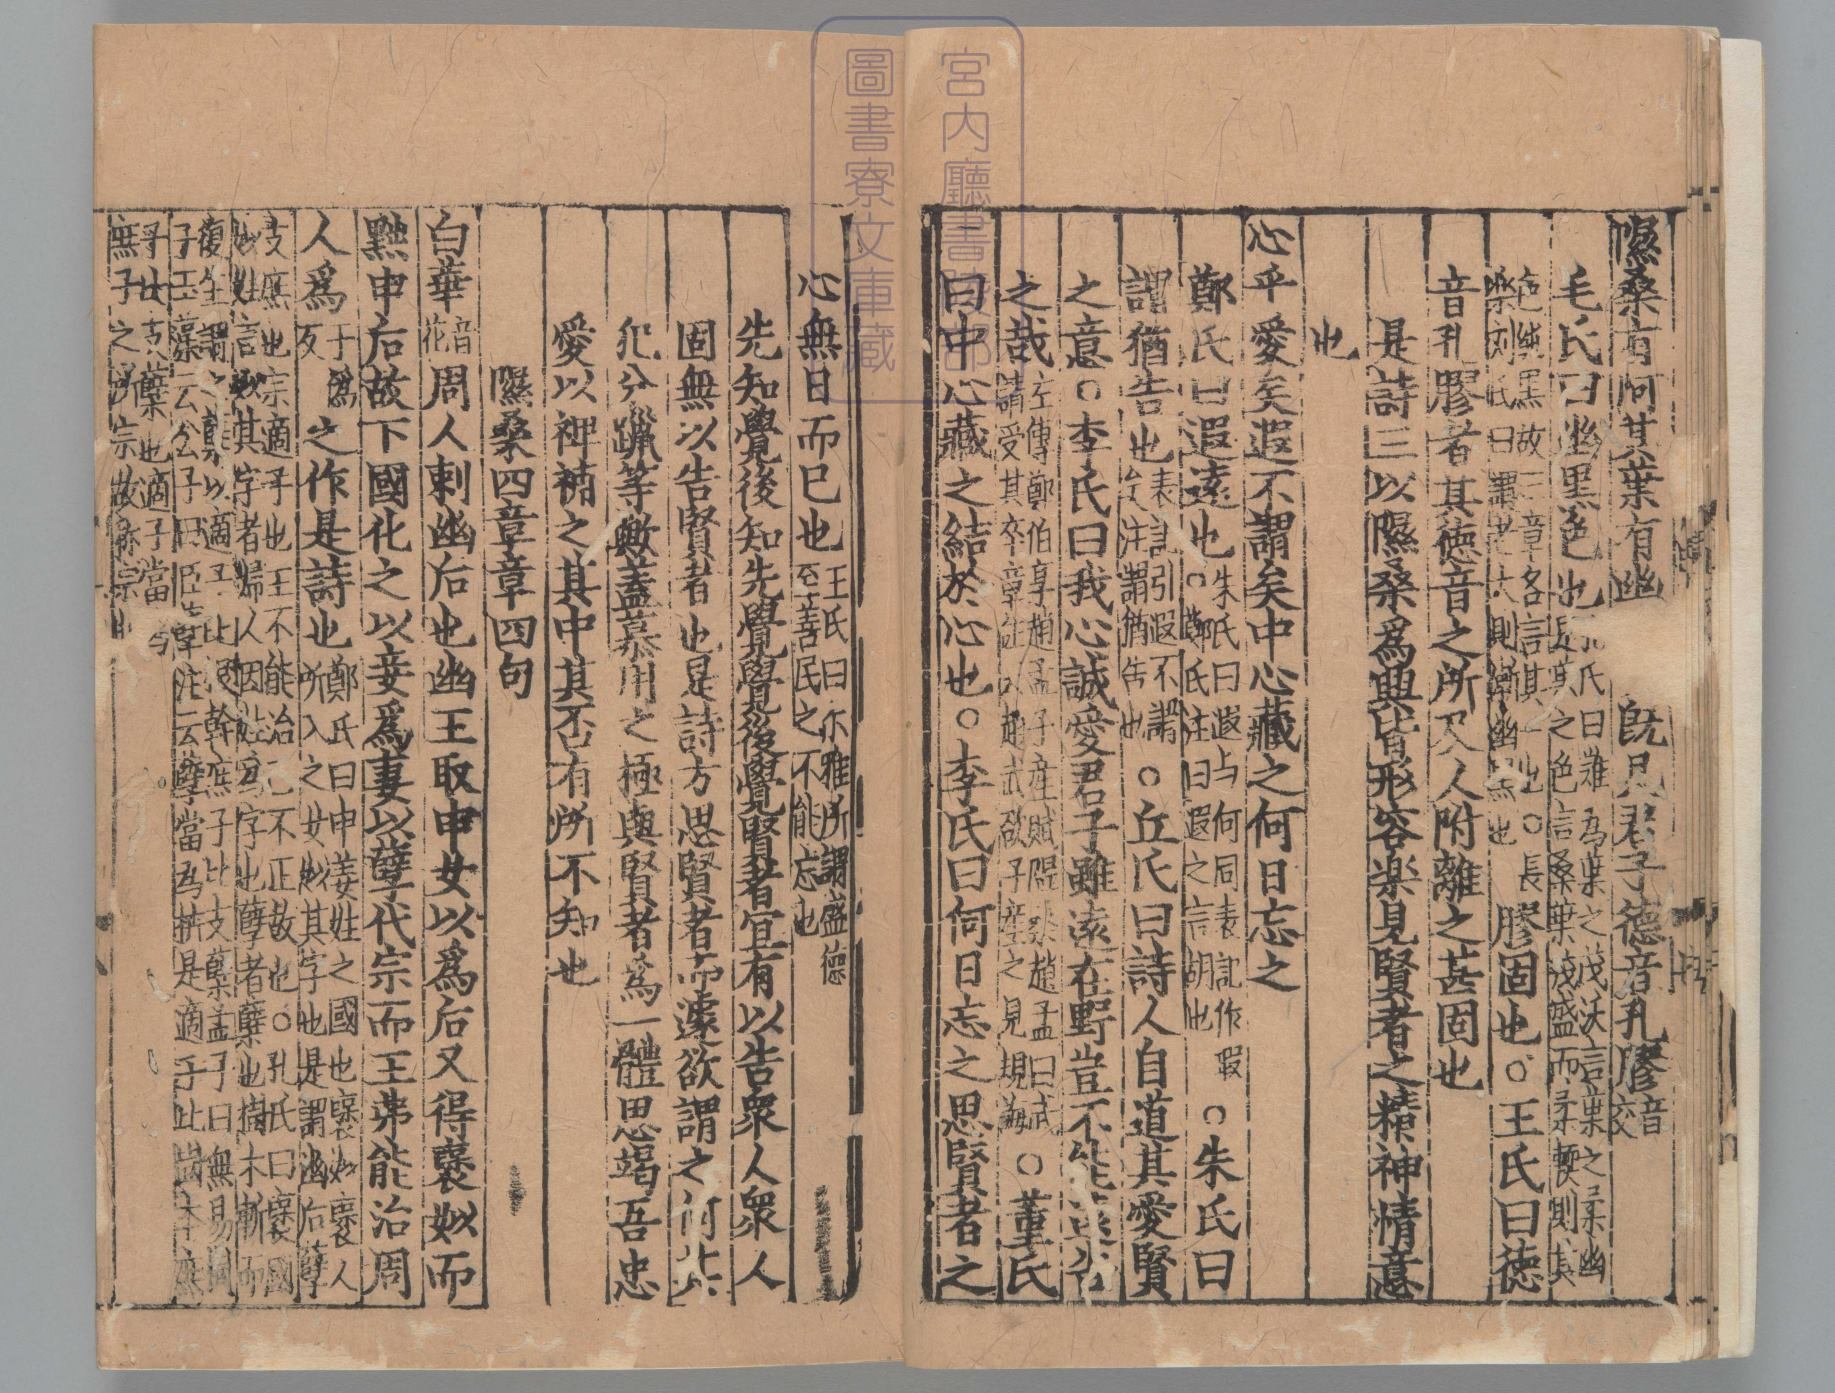 隰桑有阿其葉有幽　既見君子德音孔膠音交
毛氏曰幽黑色也孔氏曰難為葉之茂沃言葉之柔幽是其之色言桑葉茂盛而柔軟則其
色純黑故三章各言其一也○長樂劉氏曰謂老大則漸幽黑也　膠固也○王氏曰德
音孔膠者其德音之所及人附離之甚固也
是詩三以隰桑為興皆形容樂見賢者之精神情意
也
心乎愛矣遐不謂矣中心藏之何日忘之
鄭氏曰遐遠也○朱氏曰遐与何同表記作瑕鄭氏注曰瑕之言胡也○朱氏曰
謂猶告也表記引瑕不謂矣注謂猶告也○丘氏曰詩人自道其愛賢
之意○李氏曰我心誠愛君子雖遠在野豈不能遠告
之哉左傳鄭伯享趙孟子產賦隰桑趙孟曰武請受其卒章注趙武欲子產之見規誨○董氏
曰中心藏之結於心也○李氏曰何日忘之思賢者之
心無日而已也王氏曰尓雅所謂盛德至善民之不能忘也
先知覺後知先覺覺後覺賢者宜有以告眾人眾人
固無以告賢者也是詩方思賢者而遽欲謂之何其
犯分躐等歟蓋慕用之極與賢者為一體思竭吾忠
愛以裨補之其中其否有所不知也
隰桑四章章四句
白華音花周人刺幽后也幽王取申女以為后又得褒姒而
黜申后故下國化之以妾為妻以孽代宗而王弗能治周
人為于偽反之作是詩也鄭氏曰申姜姓之國也褒姒褒人所入之女姒其字也是謂幽后孽
支庶也宗適子也王不能治己不正故也○孔氏曰褒國姒姓言姒其字者婦人因姓為字也孽者蘖也樹木斬而
復生謂之蘖以適子比根幹庶子比支蘖孟子曰無易樹子玉藻云公子曰臣孽注云孽當為枿是適子比樹本庶
子比支蘖也適子當為庶子之所宗故称宗也
圖書寮文庫藏
宮内廳書陵部